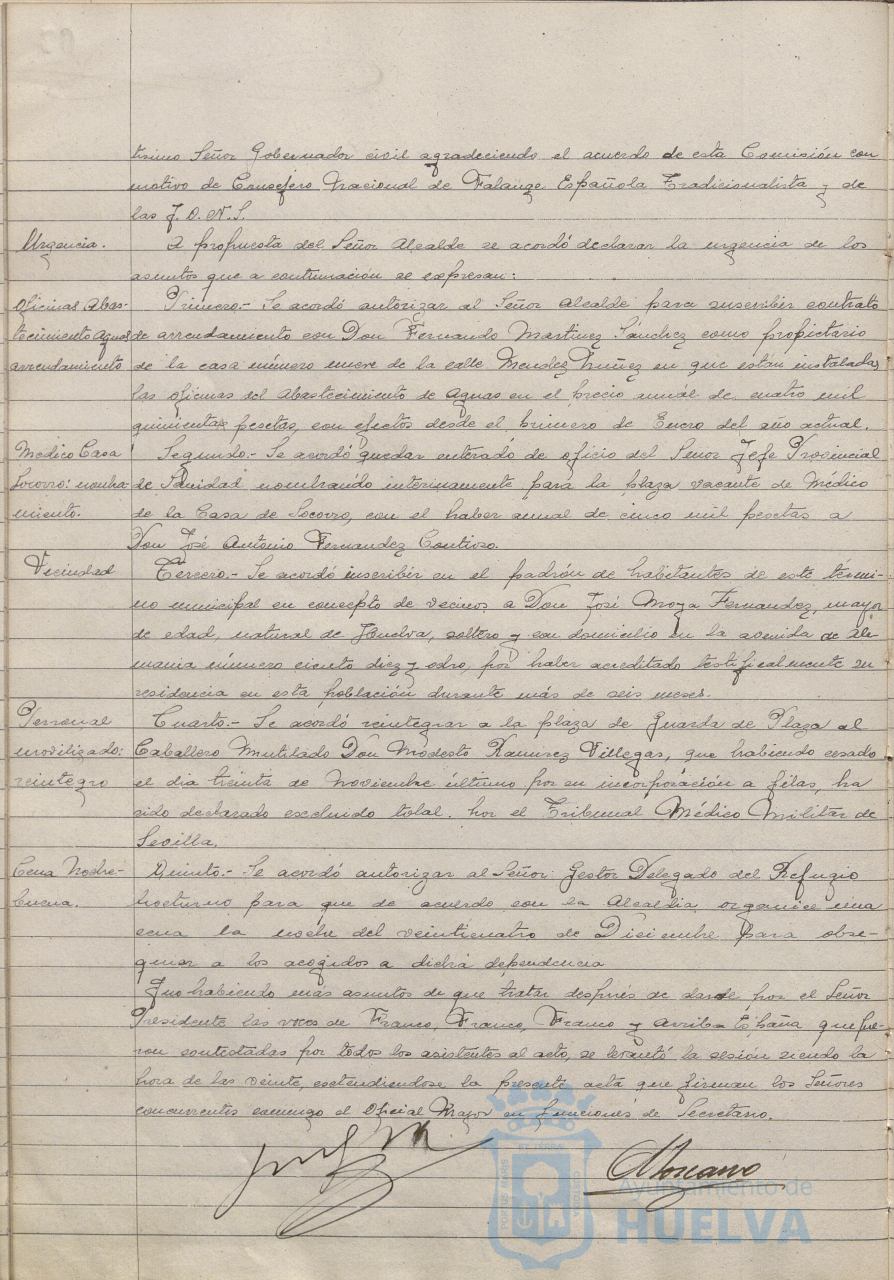 tísimo Señor Gobernador civil agradeciendo el acuerdo de esta Comisión con
motivo de Consejero Nacional de Falange Española Tradicionalista y de
las J.O.N.S.
Urgencia.
A propuesta del Señor Alcalde se acordó declarar la urgencia de los
asuntos que a continuación se expresan:
Oficinas Abas-
tecimiento Aguas
arrendamiento
Primero.- Se acordó autorizar al Señor Alcalde para suscribir contrato
de arrendamiento con Don Fernando Martinez Sánchez como propietario
de la casa número nueve de la calle Mendez Nuñez en que están instaladas
las oficinas del Abastecimiento de Aguas en el precio anual de cuatro mil
quinientas pesetas, con efectos desde el primero de Enero del año actual.
Medico Casa
Socorro: nombra-
miento.
Segundo.- Se acordó quedar enterado de oficio del Señor Jefe Provincial
de Sanidad nombrando interinamente para la plaza vacante de Médico
de la Casa de Socorro, con el haber anual de cinco mil pesetas a
Don José Antonio Fernandez Contioso.
Vecindad
Tercero.- Se acordó inscribir en el padrón de habitantes de este térmi-
no municipal en concepto de vecinos a Don José Moya Fernandez, mayor
de edad, natural de Huelva, soltero y con domicilio en la avenida de Ale-
mania número ciento diez y odro, por haber acreditado testificalmente su
residencia en esta población durante más de seis meses.
Personal
movilizado:
reintegro
Cuarto.- Se acordó reintegrar a la plaza de Guarda de Plaza al
Caballero Mutilado Don Modesto Ramirez Villegas, que habiendo cesado
el dia treinta de Noviembre último por su incorporación a filas, ha
sido declarado excluido total por el Tribunal Médico Militar de
Sevilla.
Cena Noche-
buena.
Quinto.- Se acordó autorizar al Señor Gestor Delegado del Refugio
Nocturno para que de acuerdo con la Alcaldia organice una
cena la noche del veinticuatro de Diciembre para obse-
quiar a los acogidos a dicha dependencia
Y no habiendo más asuntos de que tratar después de darse por el Señor
Presidente las voces de Franco, Franco, Franco y Arriba España que fue-
ron contestadas por todos los asistentes al acto, se levantó la sesión siendo la
hora de las veinte, extendiendose la presente acta que firman los Señores
concurrentes conmigo el Oficial Mayor en funciones de Secretario.
Ayuntamiento de
HUELVA